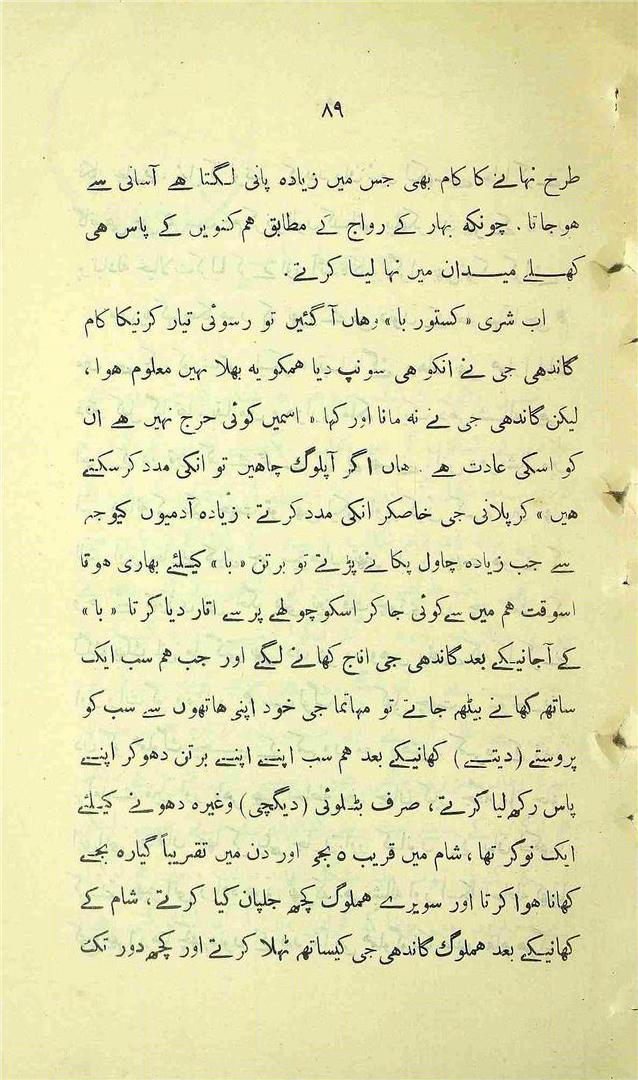 ۸۹
طرح نہانے کا کام بھی جس میں زیادہ پانی لگتا ہے آسانی سے
ہوجاتا. چونکہ بہار کے رواج کے مطابق ہم کنویں کے پاس ہی
کھلے میدان میں نہا لیا کرتے.
اب شری «کستور با» وہاں آ گئیں تو رسوئی تیار کرنیکا کام
گاندھی جی نے انکو ہی سونپ دیا ہمکو یہ بھلا نہیں معلوم ہوا،
لیکن گاندھی جی نے نہ مانا اور کہا «اسمیں کوئی حرج نہیں ہے ان
کو اسکی عادت ہے. ہاں اگر آپلوگ چاہیں تو انکی مدد کرسکتے
ہیں» کرپلانی جی خاصکر انکی مدد کرتے. زیادہ آدمیوں کیوجہ
سے جب زیادہ چاول پکانے پڑتے تو برتن «با» کیلئے بھاری ہوتا
اسوقت ہم میں سے کوئی جا کر اسکو چولھے پر سے اتار دیا کرتا «با»
کے آجانیکے بعد گاندھی جی اناج کھانے لگے اور جب ہم سب ایک
ساتھ کھانے بیٹھ جاتے تو مہاتما جی خود اپنی ہاتھوں سے سب کو
پروستے (دیتے) کھانیکے بعد ہم سب اپنے اپنے برتن دھوکر اپنے
پاس رکھ لیا کرتے، صرف بٹلوئی (دیگچی) وغیرہ دھونے کیلئے
ایک نوکر تھا، شام میں قریب ۵ بجے اور دن میں تقریباً گیارہ بجے
کھانا ہوا کرتا اور سویرے ہملوگ کچھ جلپان کیا کرتے، شام کے
کھانیکے بعد ہملوگ گاندھی جی کیساتھ ٹہلا کرتے اور کچھ دور تک